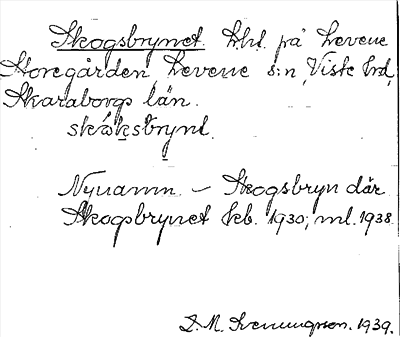 Skogsbrynet lht. på Levene
Storegården, Levene s:n, Viste hd,
Skaraborgs län.
skóksbrynt.
Nynamn. – Skogsbryn där
Skogsbrynet kb. 1930; ml. 1938.
D. M. Svenungson. 1939.